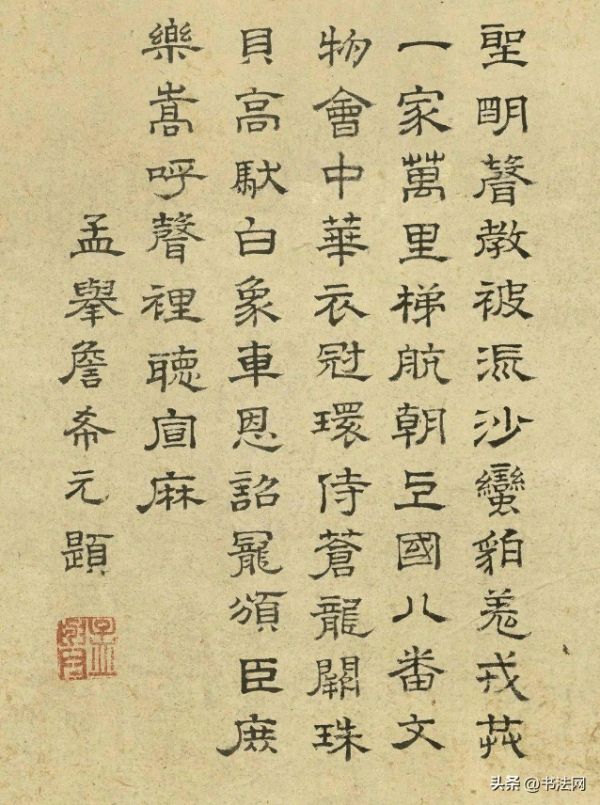 聖明聲教被流沙蠻貊羗戎共
一家萬里梯航朝上國八番文
物會中華衣冠環侍蒼龍闕珠
貝高馱白象車恩詔寵頒臣庶
樂嵩呼聲裡聽宣麻
孟舉詹希元題
头条 @书法网